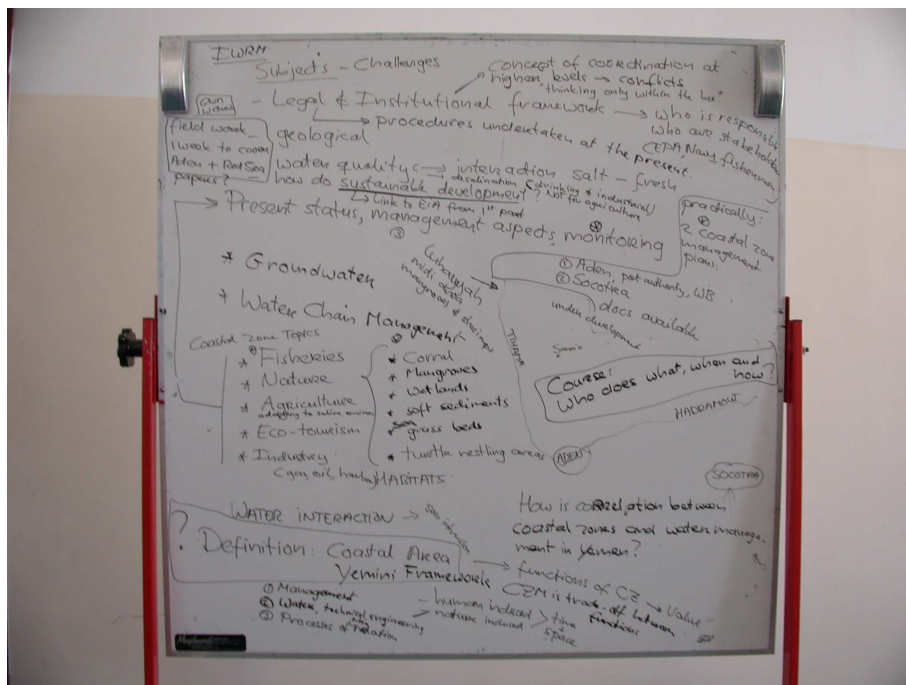 IWRM
Subjects - Challenges
concept of coordination at
higher levels → conflicts
"thinking only within the box"
- Legal & Institutional framework → who is responsible
who are stakeholders
(EPA, Navy, fishermen)
→ procedures undertaken at the present.
own
field work -
1 week to
Aden + Red Sea
papers?
geological
water quality → interaction salt - fresh
→ desalination (drinking & industrial)
Not for agriculture
how do sustainable development?
→ Link to EIA from 1st part
→ Present status, management aspects, monitoring
③
practically:
2 coastal zone
management
plans.
① Aden port authority, WB
② Socotra
docs available
under development
* Groundwater
* Water Chain Management
midi area
mangroves & shrimps
TIHAMA
Coastal Zone Topics
* Fisheries
* Nature
* Agriculture
adapting to saline environ
* Eco-tourism
* Industry
(gas, oil, harbor)
* Corral
* Mangroves
* Wetlands
* soft sediments
* sea grass beds
* turtle nestling areas
HABITATS
Course:
Who does what, when and
how?
HADRAMOUT
ADEN
SOCOTRA
WATER INTERACTION →
? Definition: Coastal Area
Yemini Frameworks
How is correlation between
coastal zones and water manage-
ment in Yemen?
→ functions of CZ → Value
CZM is trade-off between
functions
① Management
② Water, technical engineering
③ Processes of relation
- human induced
nature induced
time
space